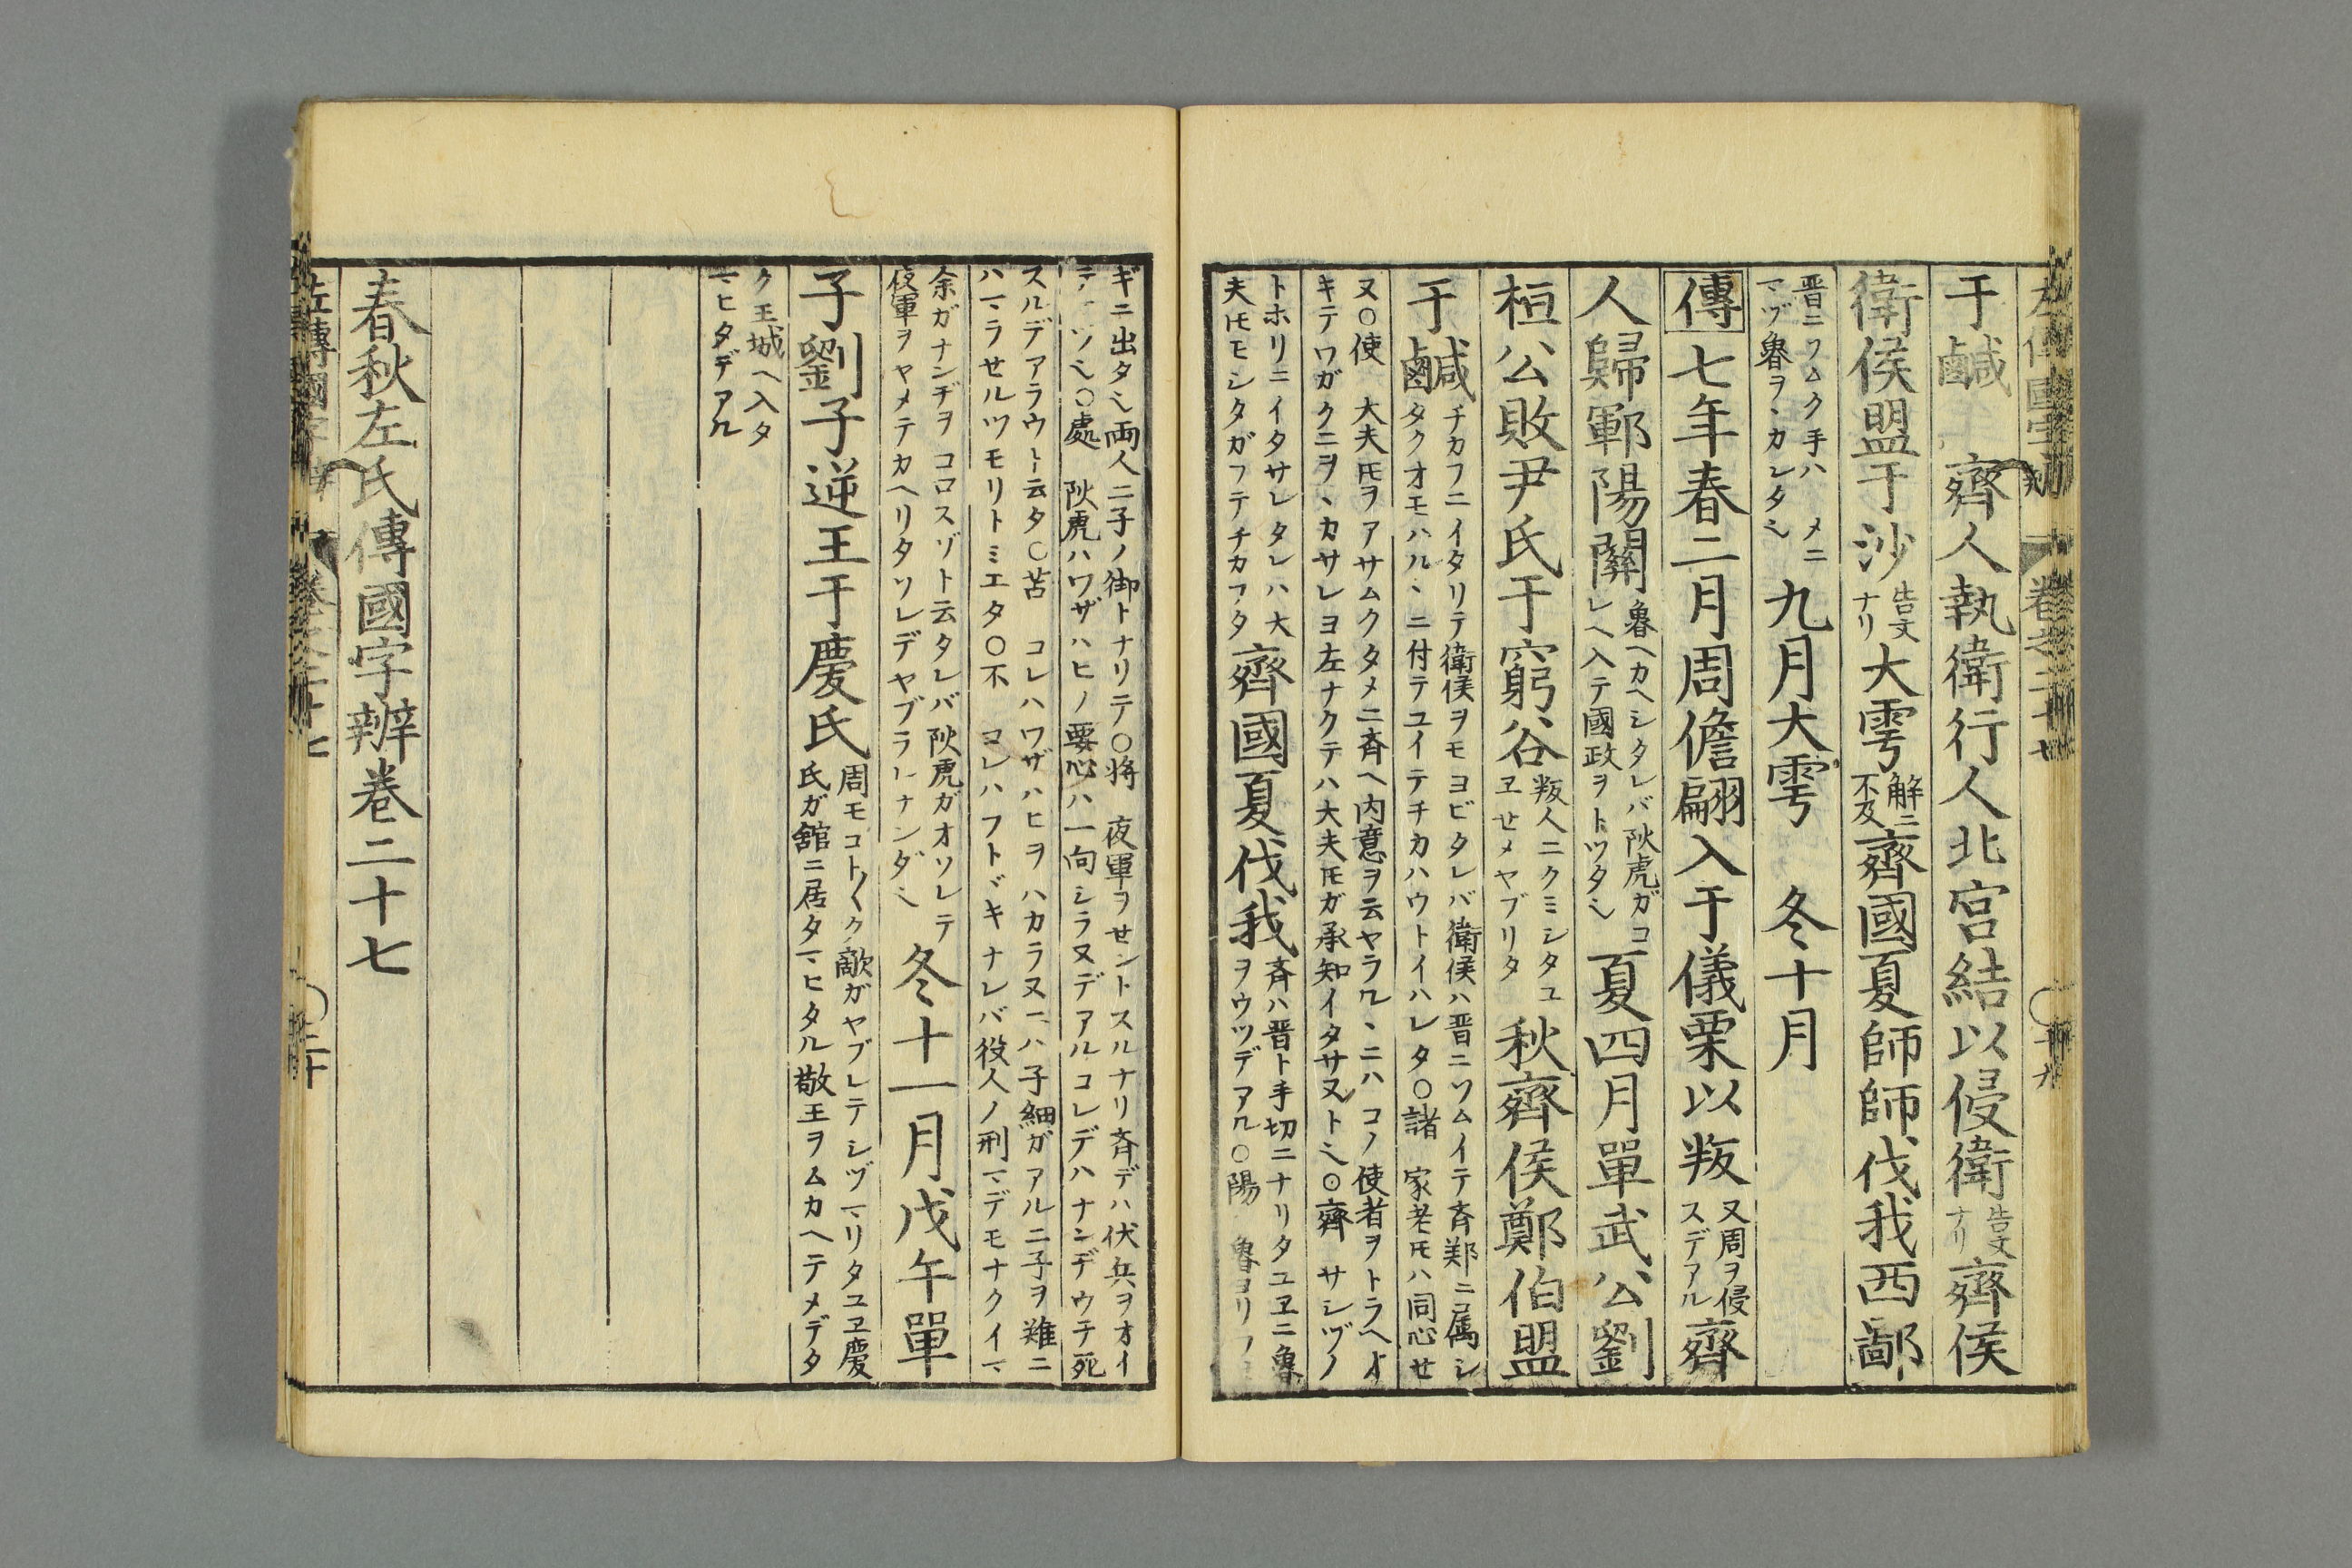 于鹹 齊人執衛行人北宮結以侵衛告文ナリ齊侯
衛侯盟于沙告文ナリ大雩解ニ不及齊國夏師師伐我西鄙
晋ニワムク手ハ メニマヅ魯ヲヽカレタ 九月大雩 冬十月
傳七年春二月周儋翩入于儀栗以叛又周ヲ侵スデアル齊
人歸鄆陽關魯ヘカヘシタレバ陽虎ガコレヘ入テ國政ヲトツタ 夏四月單武公劉
桓公敗尹氏于窮谷叛人ニクミシタユヱせメヤブリタ 秋齊侯鄭伯盟
于鹹チカフニイタリテ衛侯ヲモヨビタレバ衛侯ハ晋ニソムイテ斉鄭ニ属シタクオモハルヽニ付テユイテチカハウトイハレタ〇諸 家老𪜈ハ同心せ
又〇使 大夫𪜈ヲアサムクタメニ斉ヘ内意ヲ云ヤラルヽニハコノ使者ヲトラヘイキテワガクニヲヽカサレヨ左ナクテハ大夫𪜈ガ承知イタサヌト 〇齊 サシヅノ
トホリニイタサレタレハ大夫𪜈モシタガフテチカフタ齊國夏伐我斉ハ晋ト手切ニナリタユヱニ魯ヲウツデアル〇陽 魯ヨリ
ギニ出タ 両人二子ノ御トナリテ〇将 夜軍ヲせントスルナリ斉デハ伏兵ヲオイテ ツ 〇處 陽虎ハワザハヒノ要心ハ一向シラヌデアルコレデハナンデウチ死
スルデアラウト云タ〇苫 コレハワザハヒヲハカラヌ ハ子細ガアル二子ヲ難ニハマラせルツモリトミエタ〇不 コレハフトヾキナレバ役人ノ刑マデモナクイマ
余ガナンヂヲコロスゾト云タレバ陽虎ガオソレテ夜軍ヲヤメテカヘリタソレデヤブラレナンダ 冬十一月戊午單
子劉子逆王于慶氏周モコト〳〵ク敵ガヤブレテシヅマリタユヱ慶氏ガ舘ニ居タマヒタル敬王ヲムカヘテメデタ
ク王城ヘ入タマヒタデアル
春秋左氏傳國字辨巻二十七